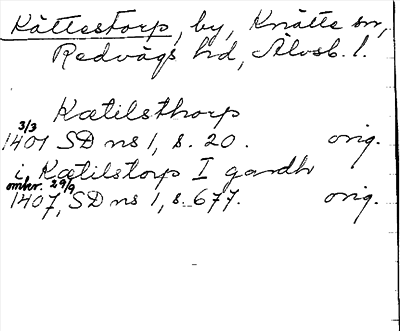 Kättestorp, by, Knätte sn,
Redvägs hd, Älvsb. l.
Kætilsthorp
3/3
1401 SD ns 1, s. 20. orig.
i Kætilstorp I gardh
omkr. 29/9
1407, SD ns 1, s. 677. orig.